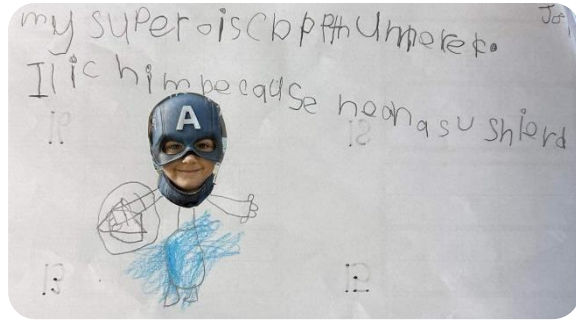 my super is Cbpthumperek.
I lic him because heonasu shierd
A